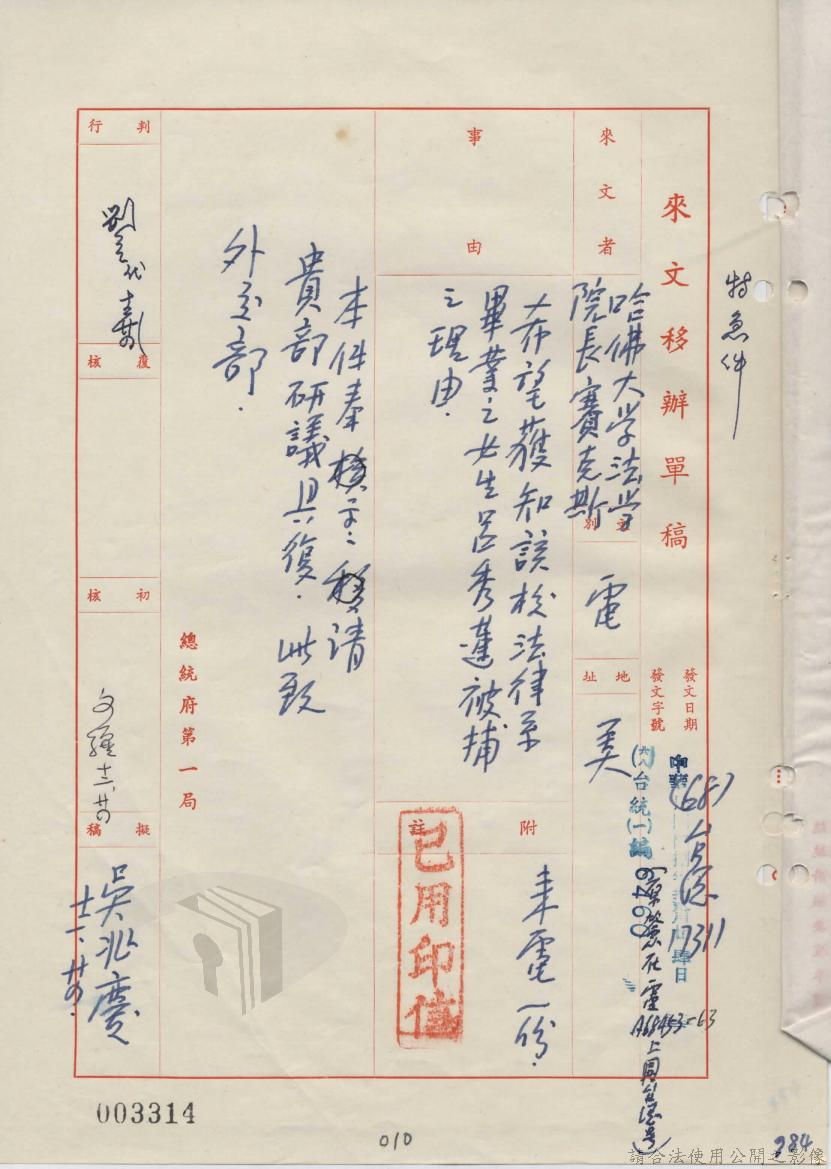 特急件
來文移辦單稿
發文日期
發文字號
(68)台統17311
台統(一)編
來文者
哈佛大学法学
院長賽克斯
文別
電
地址
美
事由
希望獲知該校法律系
畢業之女生呂秀蓮被捕
之理由.
附註
来電一份.
已用印信
本件奉核示:移請
貴部研議具復.此致
外交部.
總統府第一局
判行
覆核
初核
擬稿
吳兆慶
十二、廿四.
003314
010
984
請合法使用公開之影像